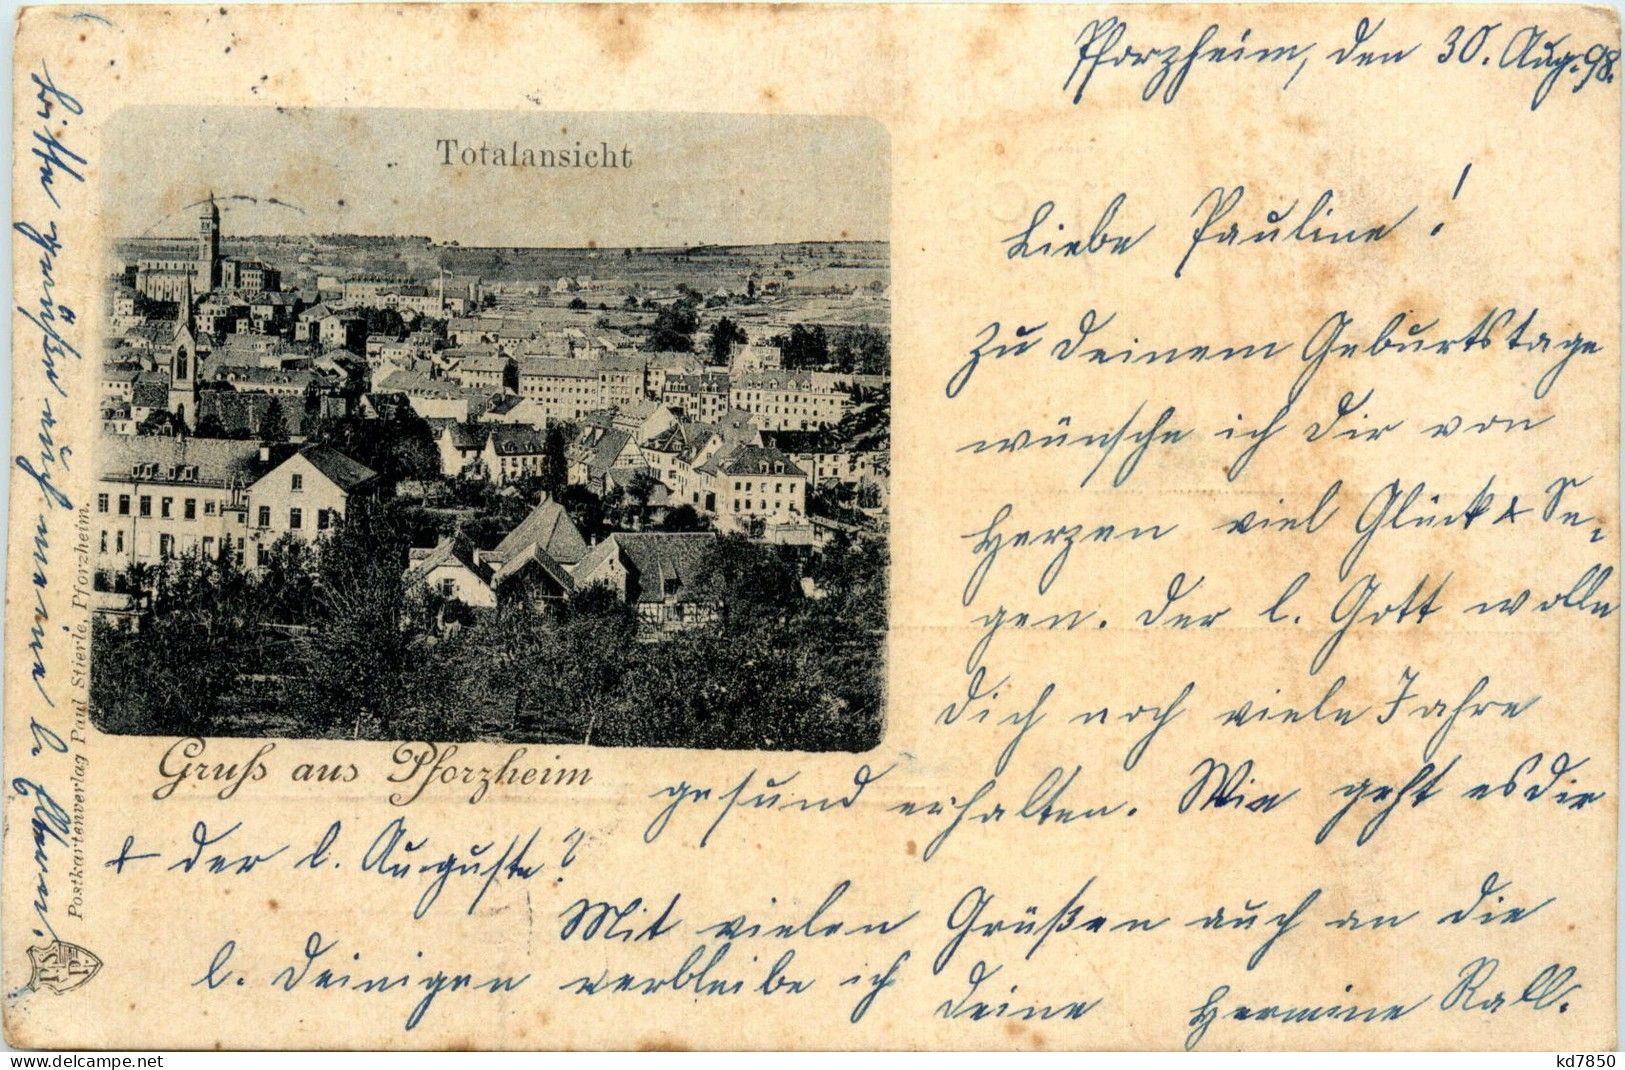 Pforzheim, den 30. Aug. 98.
Totalansicht
Liebe Pauline!
Zu Deinem Geburtstage
wünsche ich Dir von
Herzen viel Glück & Se-
gen. Der l. Gott wolle
Dich noch viele Jahre
Gruß aus Pforzheim
gesund erhalten. Wie geht es Dir
& der l. Auguste?
Mit vielen Grüßen auch an die
l. Deinigen verbleibe ich
Deine Hermine Rall.
Bitte grüße auch meine l. Eltern.
Postkartenverlag Paul Stierle, Pforzheim.
P. S. P.
delcampe.net
kd7850